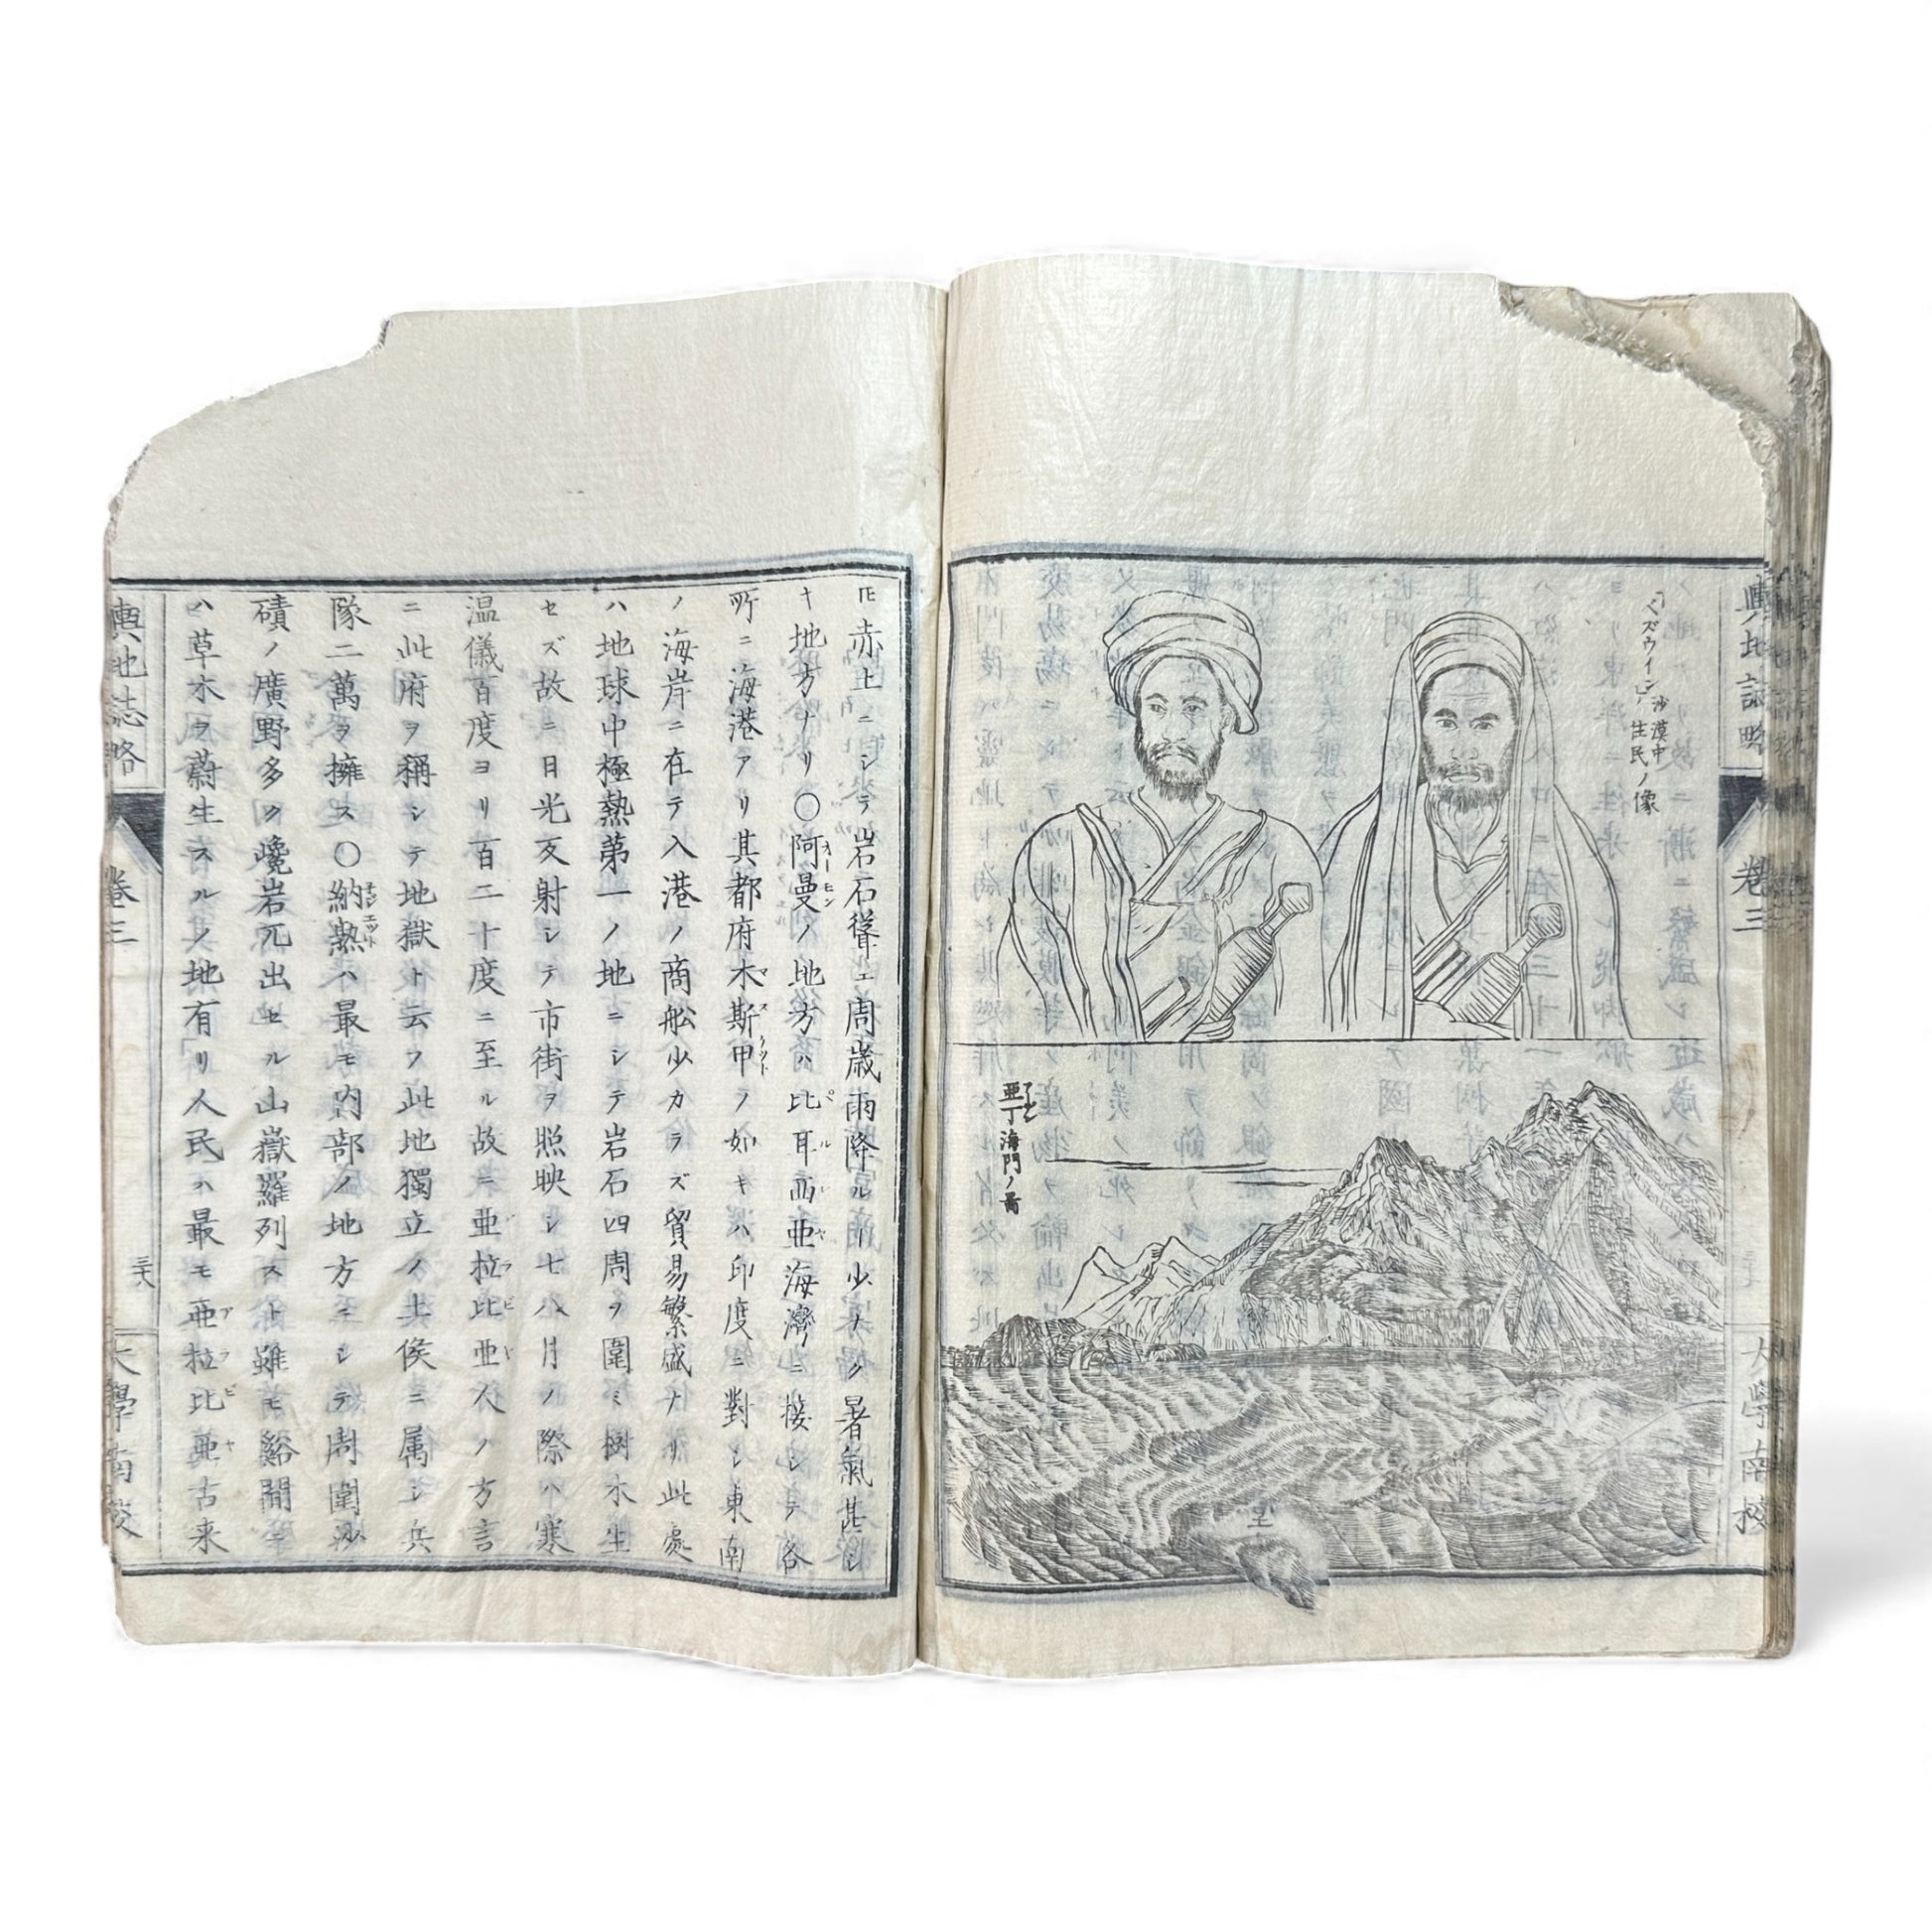 輿地誌略
卷三
大學南校
「ベズウイン」沙漠中ノ住民ノ像
亜丁海門ノ景
アデン
赤土ニシテ岩石聳エ周歳雨降ル少ナク暑氣甚シ
キ地方ナリ〇阿曼ノ地方ハ比耳西亜海灣ニ接シテ各
所ニ海港アリ其都府木斯甲ノ如キハ印度ニ對シ東南
ノ海岸ニ在テ入港ノ商舩少カラズ貿易繁盛ナリ此處
ハ地球中極熱第一ノ地ニシテ岩石四周ヲ圍ミ樹木生
セズ故ニ日光反射シテ市街ヲ照映シ七八月ノ際ハ寒
温儀百度ヨリ百二十度ニ至ル故ニ亜拉比亜人ノ方言
ニ此府ヲ稱シテ地獄ト云フ此地獨立ノ士侯ニ属シ兵
隊二萬ヲ擁ス〇納熱ハ最モ内部ノ地方ニシテ周圍沙
磧ノ廣野多ク巉岩兀出セル山嶽羅列スト雖モ谿間ニ
ハ草木ヲ蔚生スルノ地有リ人民ハ最モ亜拉比亜古来
輿地誌略
卷三
三十八
大學南校